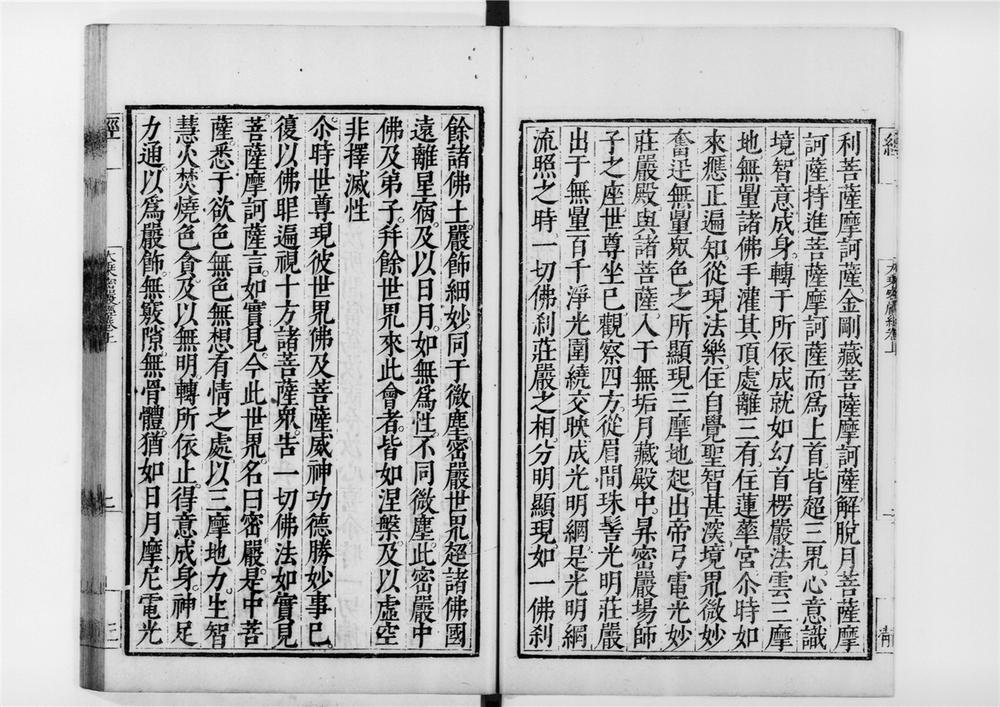 利菩薩摩訶薩金剛藏菩薩摩訶薩解脫月菩薩摩
訶薩持進菩薩摩訶薩而為上首皆超三界心意識
境智意成身轉于所依成就如幻首楞嚴法雲三摩
地無量諸佛手灌其頂處離三有住蓮華宮尒時如
來應正遍知從現法樂住自覺聖智甚深境界微妙
奮迅無量眾色之所顯現三摩地起出帝弓電光妙
莊嚴殿與諸菩薩入于無垢月藏殿中昇密嚴場師
子之座世尊坐已觀察四方從眉間珠髻光明莊嚴
出于無量百千淨光圍繞交映成光明網是光明網
流照之時一切佛剎莊嚴之相分明顯現如一佛剎
餘諸佛土嚴飾細妙同于微塵密嚴世界超諸佛國
遠離星宿及以日月如無為性不同微塵此密嚴中
佛及弟子并餘世界來此會者皆如涅槃及以虛空
非擇滅性
尒時世尊現彼世界佛及菩薩威神功德勝妙事已
復以佛眼遍視十方諸菩薩眾告一切佛法如實見
菩薩摩訶薩言如實見今此世界名曰密嚴是中菩
薩悉于欲色無色無想有情之處以三摩地力生智
慧火焚燒色貪及以無明轉所依止得意成身神足
力通以為嚴飾無竅隙無骨體猶如日月摩尼電光
經
大乘密嚴經卷上
三